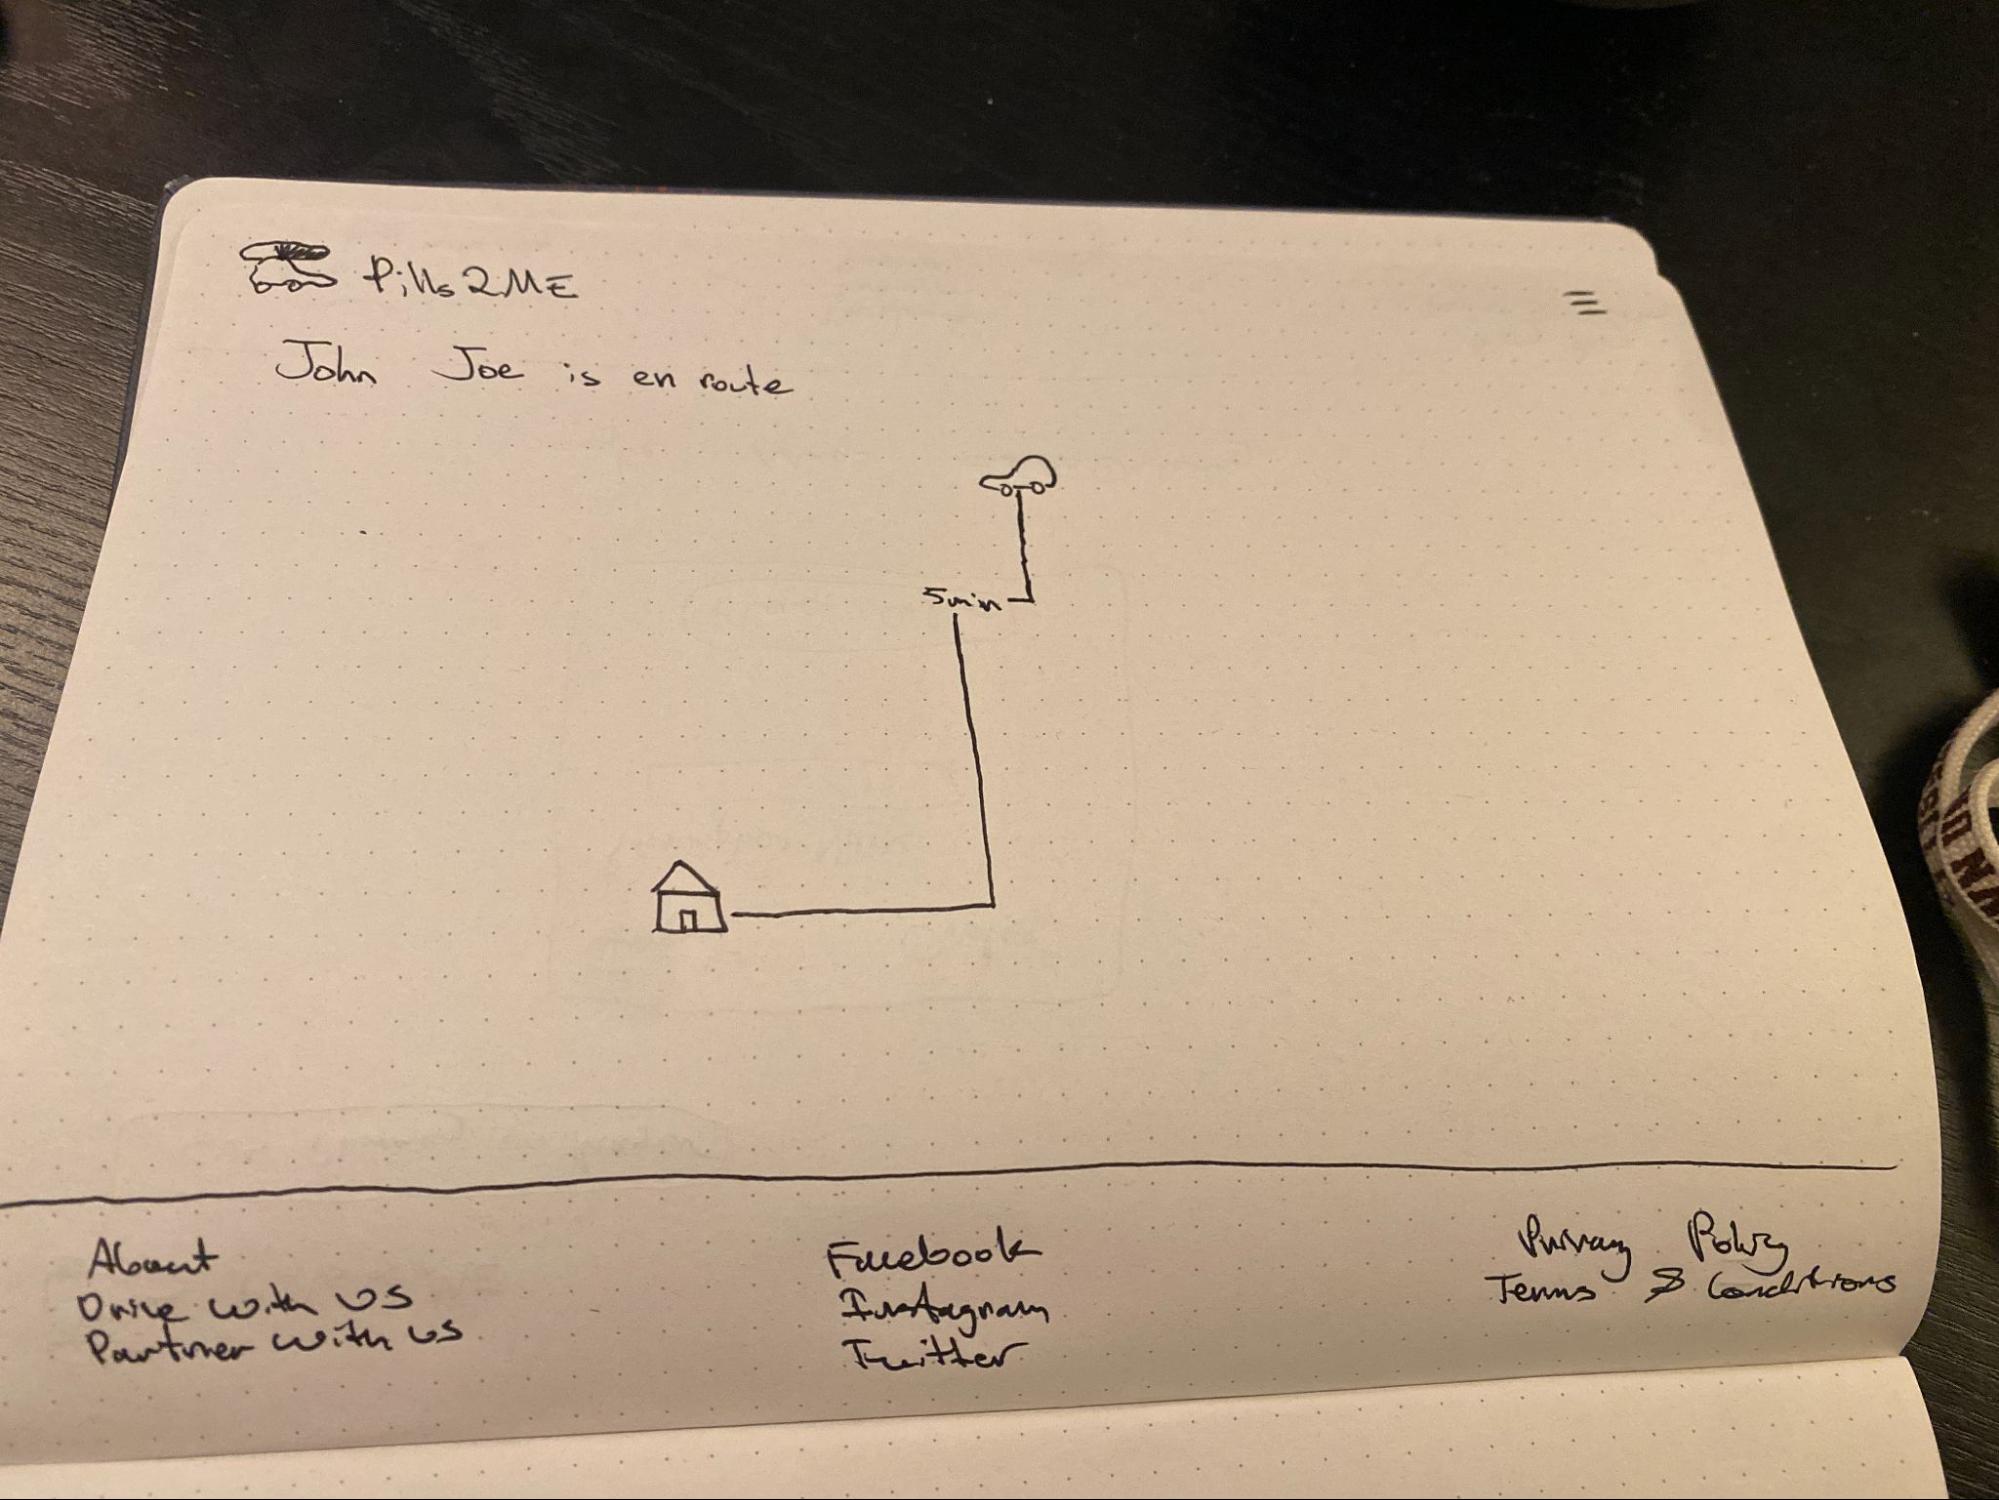 Pills2ME
John Joe is en route
5min
About
Drive with us
Partner with us
Facebook
Instagram
Twitter
Privacy Policy
Terms & Conditions